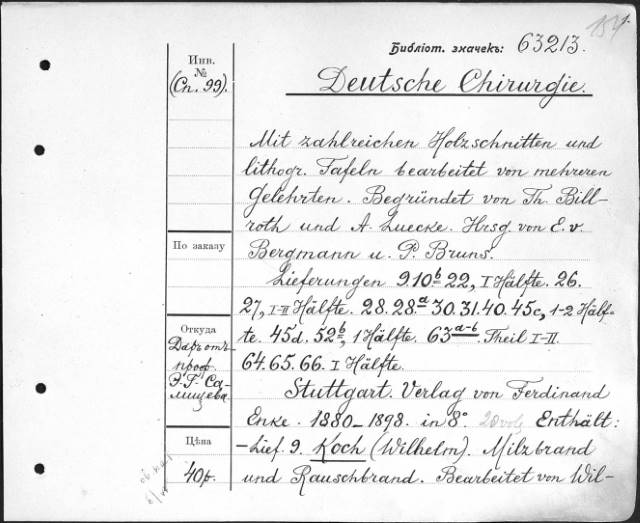 154.
Библіот. значекъ: 63213.
Инв.
№
(Сп. 99).
Deutsche Chirurgie.
Mit zahlreichen Holzschnitten und
lithogr. Tafeln bearbeitet von mehreren
Gelehrten. Begründet von Th. Bill-
roth und A. Luecke. Hrsg. von E. v.
По заказу
Bergmann u. P. Bruns.
Lieferungen 9. 10b 22, I Hälfte. 26.
27, I-II Hälfte. 28. 28.a 30. 31. 40. 45c, 1-2 Hälf-
te. 45d. 52b, 1 Hälfte. 63a-b Theil I-II.
64. 65. 66. I Hälfte.
Откуда
Даръ отъ
проф.
Э. Г. Са-
лищева.
Stuttgart. Verlag von Ferdinand
Enke. 1880-1898. in 8° 20 vol Enthält:
Цѣна
40 р.
- Lief. 9. Koch (Wilhelm). Milzbrand
und Rauschbrand. Bearbeitet von Wil-